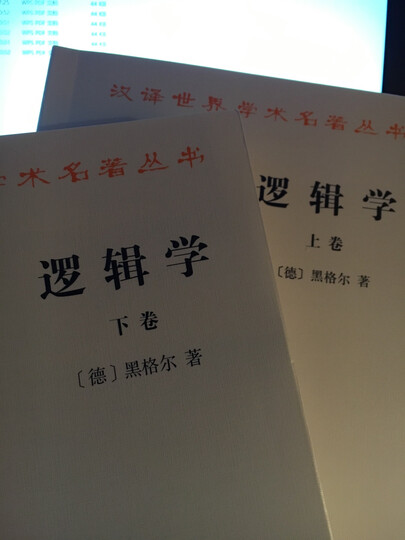 汉译世界学术名著丛书
逻辑学
上卷
〔德〕黑格尔 著
学术名著丛书
逻辑学
下卷
〔德〕黑格尔 著